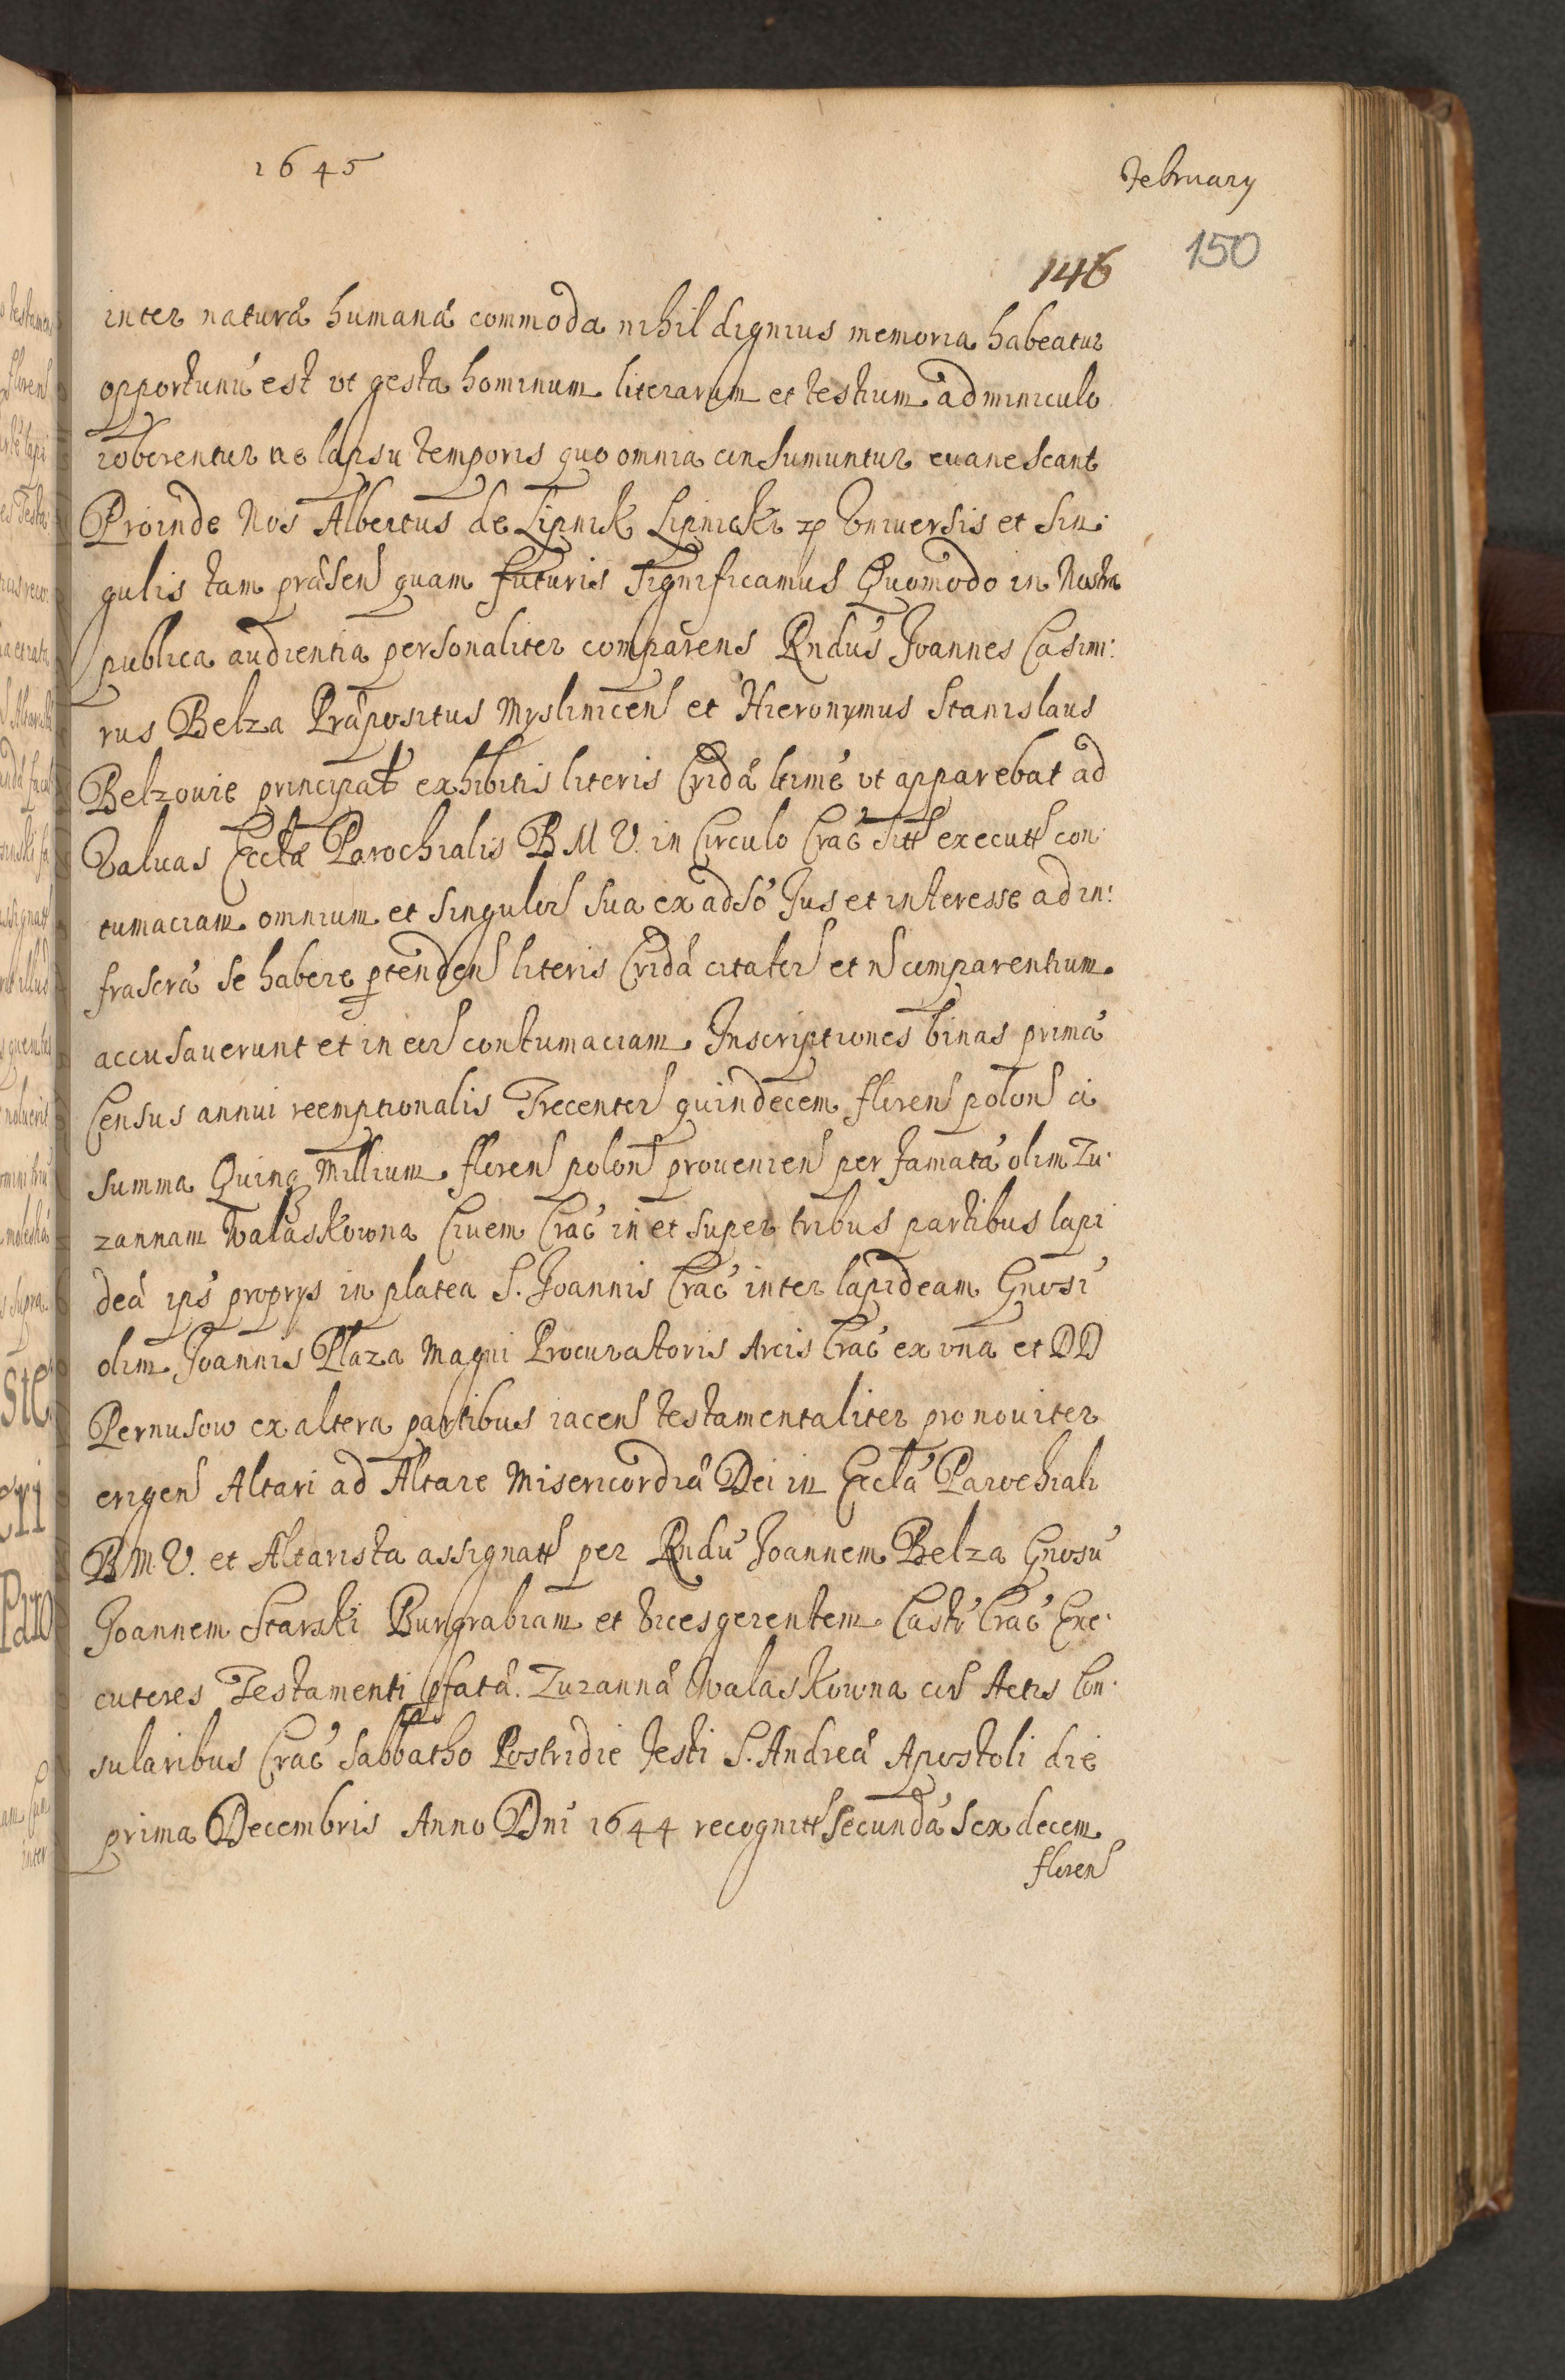 1645
February
150
146
inter naturæ humanæ commoda nihil dignius memoria habeatur
opportunú est ut gesta hominum literarum et testium adminiculo
roborentur ne lapsu temporis quo omnia consumuntur euanescant
Proinde Nos Albertus de Lipnik Lipnicki Vniversis et sin:
gulis tam præsen quam futuris significamus Quomodo in Nostra
publica audientia personaliter comparens Rndus Joannes Casimi:
rus Belza Præpositus Myslinicen et Hieronymus Stanislaus
Belzowie principal exhibitis literis Cridæ ltimé ut apparebat ad
Valuas Ecclæ Parochialis B M V. in Circulo Crac sitt executt con:
tumaciam omnium et singulor sua ex adso Jus et interesse ad in:
frascra se habere ptenden literis Cridæ citator et n comparentium
accusauerunt et in eor contumaciam Inscriptiones binas primá
Census annui reemptionalis Trecentor quindecem floren polon á
summa Quinq Millium floren polon prouenien per famatá olim Zu:
zannam Walaskowna Ciuem Crac in et super tribus partibus lapi
deæ ips proprys in platea S. Joannis Crac inter lapideam Gnosi
olim Joannis Plaza Magni Procuratoris Arcis Crac ex vna et DD
Pernusow ex altera partibus iacen testamentaliter pro nouiter
erigen Altari ad Altare Misericordiæ Dei in Ecclá Parochiali
B.M.V. et Altarista assignatt per Rndú Joannem Belza Gnosú
Joannem Starski Burgrabiam et Vicesgerentem Castr Crac Exe:
cutores Testamenti pfatæ Zuzannæ Walaskowna cor Actis Con:
sularibus Crac Sabbatho Postridie festi S. Andreæ Apostoli die
prima Decembris Anno Dni 1644 recognitt secundá sexdecem
floren